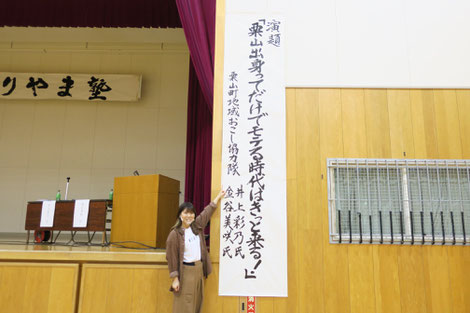 演題
「栗山出身ってだけでモテる時代はきっと来る！」
栗山町地域おこし協力隊
井上彩乃氏
金谷美咲氏
りやま塾
消火